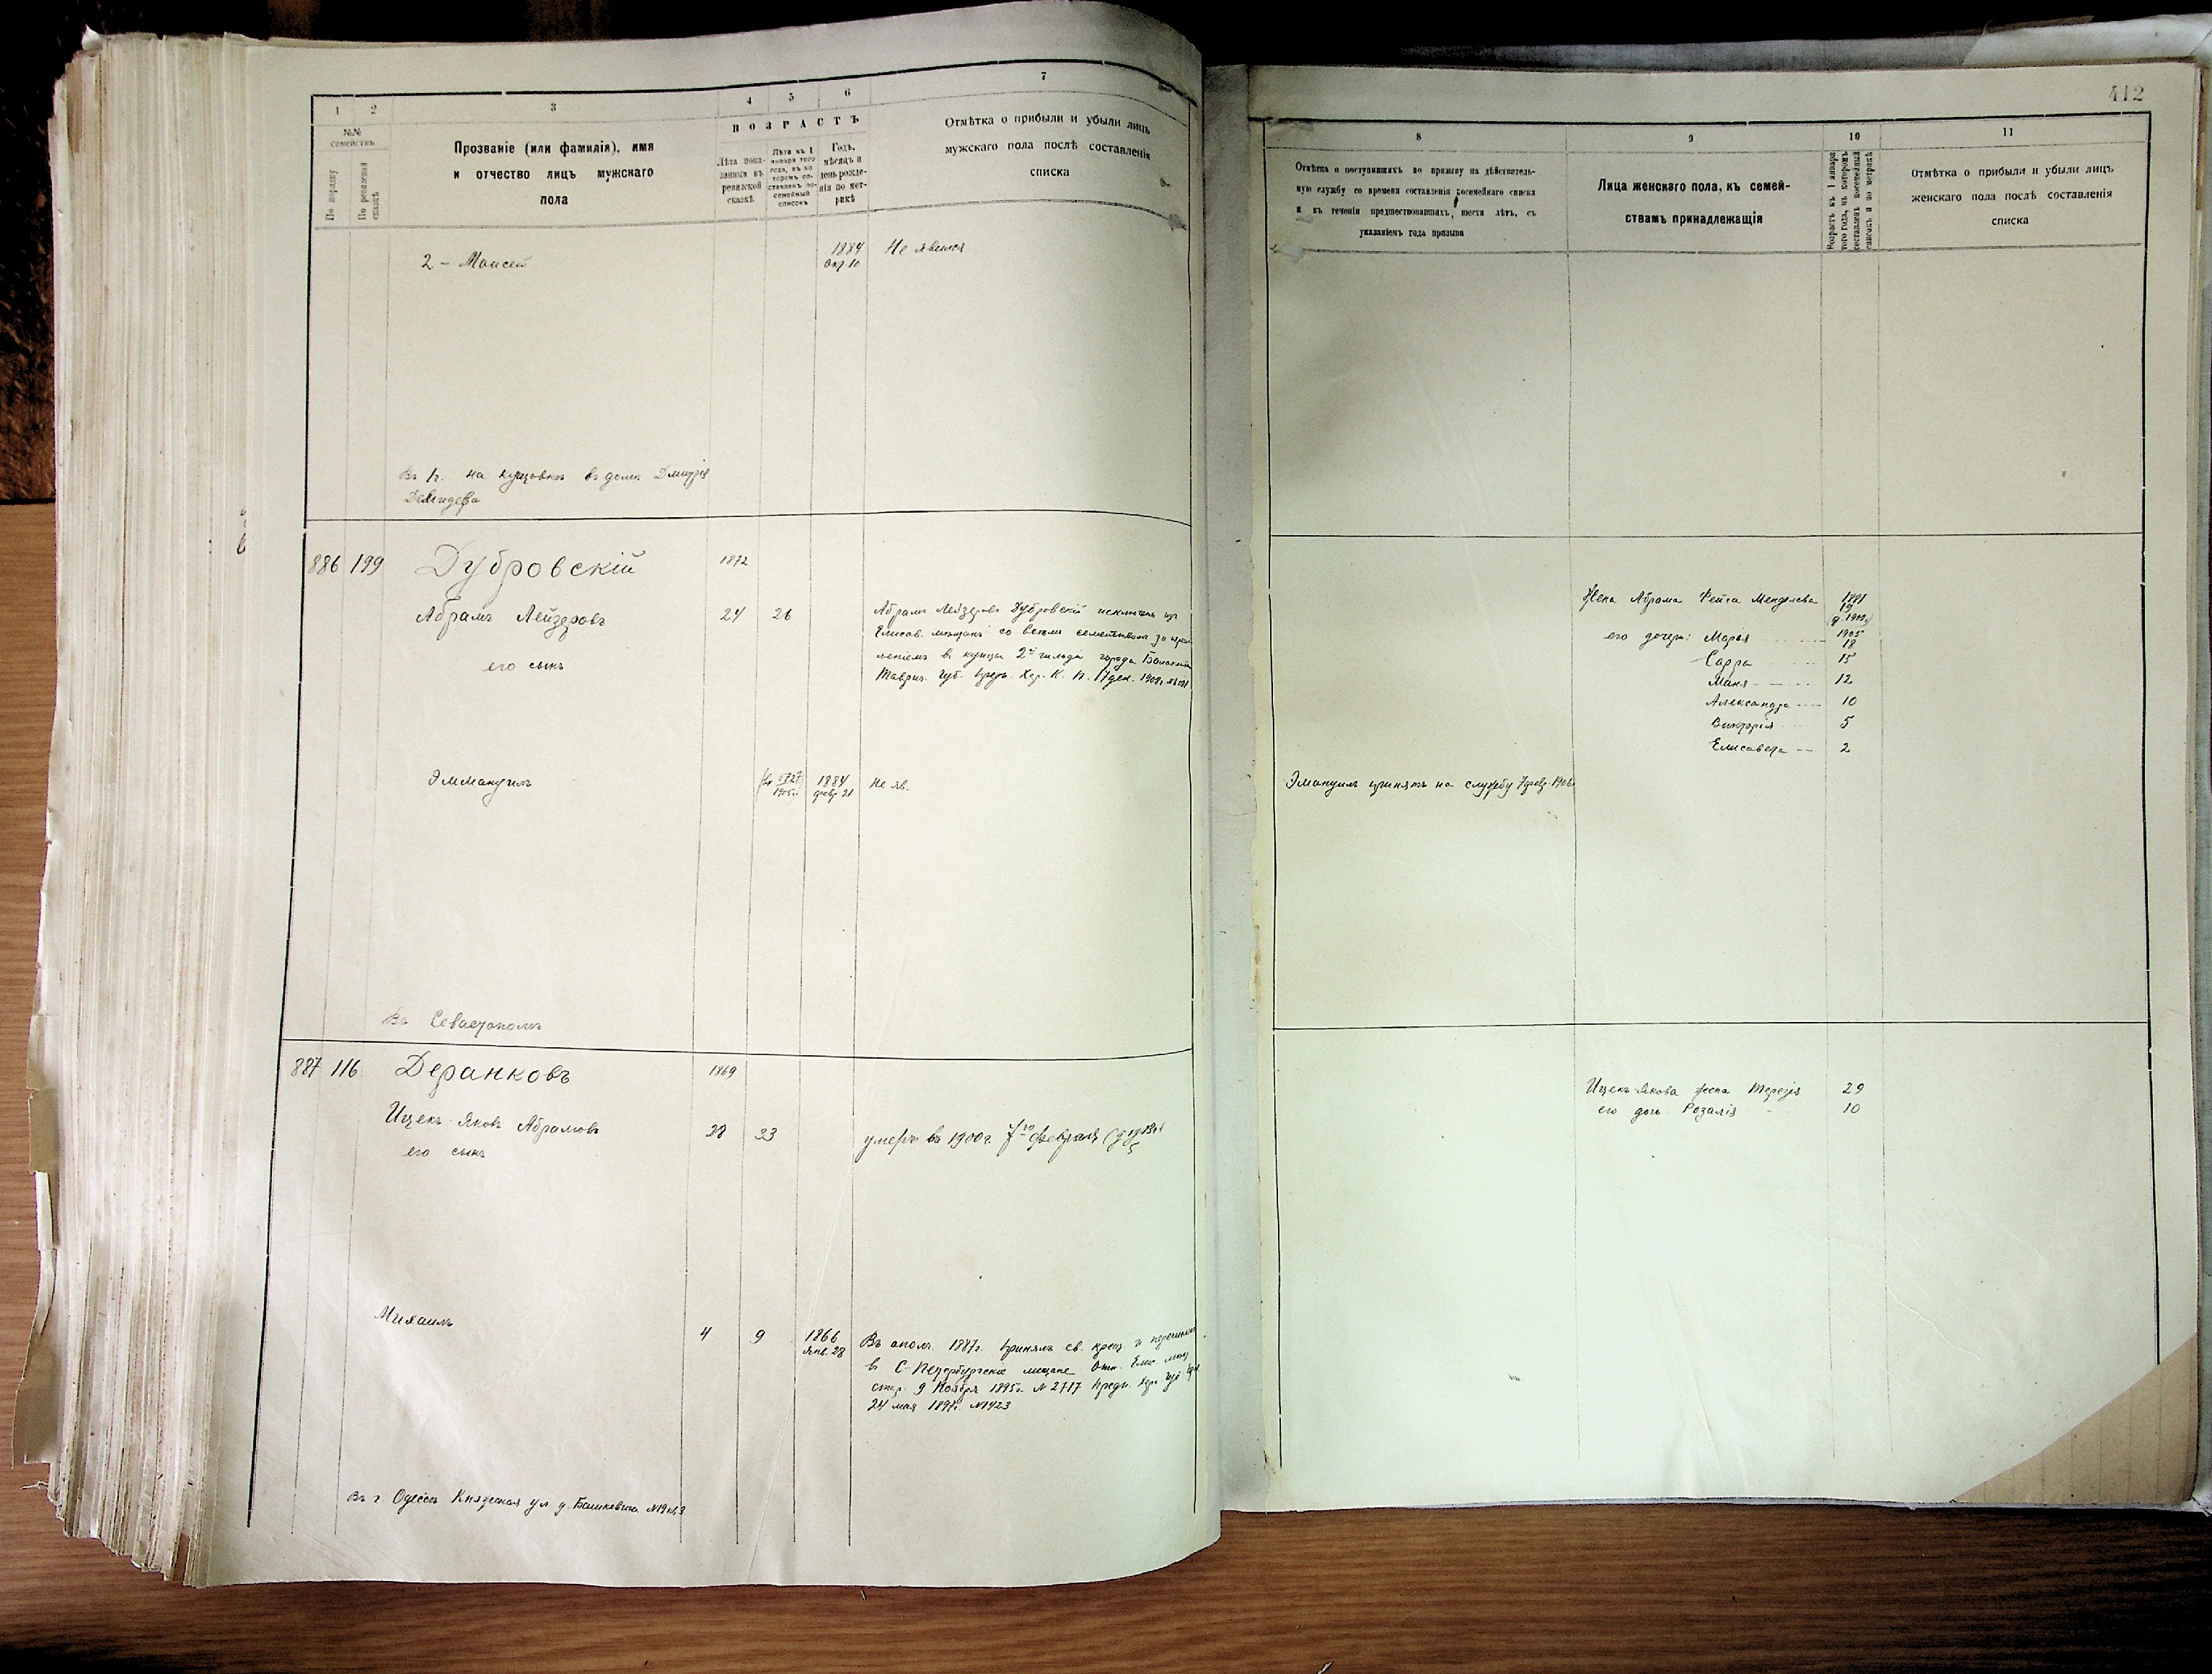 1 2 3 4 5 6 7
№№ семействъ
По порядку
По ревизской сказкѣ
Прозваніе (или фамилія), имя
и отчество лицъ мужскаго
пола
ВОЗРАСТЪ
Лѣта пока-
занныя въ
ревизской
сказкѣ
Лѣта къ 1
января того
года, въ ко-
торомъ со-
ставленъ по-
семейный
списокъ
Годъ,
мѣсяцъ и
день рожде-
нія по мет-
рикѣ
Отмѣтка о прибыли и убыли лицъ
мужскаго пола послѣ составленія
списка
2 – Моисей
1884
Окт. 10
Не явился
въ домѣ Дмитрія
886 199 Дубровскій 1872
Абрамъ Лейзеровъ 24 26
его сынъ
Абрамъ Лейзеровъ Дубровскій исключенъ изъ
Елисав. мѣщанъ со всѣмъ семействомъ за
въ купцы 2й гильдіи города
Таврич. губ. Хер. К. П. 17 дек. 1908г.
Эммануилъ
1905г.
1884
февр 21
Не яв.
Въ Севастополѣ
887 116 Деранковъ 1869
Ицекъ-Яковъ Абрамовъ 28 33
его сынъ
умеръ въ 1900г. 7го февраля
Михаилъ 4 9
1866
янв. 28
1887г. принялъ св. крещ. и
въ С-Петербургскіе мѣщане Отн. Елис. мѣщ.
стар. 9 Ноября 1895г. № 2717
24 мая 1897г. №1423
Въ г. Одессѣ Княжеская ул д. №19
412
8 9 10 11
Отмѣтка о поступившихъ по призыву на дѣйствитель-
ную службу со времени составленія посемейнаго списка
и въ теченіи предшествовавшихъ шести лѣтъ, съ
указаніемъ года призыва
Лица женскаго пола, къ семей-
ствамъ принадлежащія
Возрастъ къ 1 января
того года, въ которомъ
составленъ посемейный
списокъ и по метрикѣ
Отмѣтка о прибыли и убыли лицъ
женскаго пола послѣ составленія
списка
Жена Абрама Фейга Менделева
его дочери: Марья 18
Сарра 15
Маня 12
Александра 10
Викторія 5
Елисавета 2
Эмануилъ принятъ на службу
Ицекъ-Якова жена Терезія 29
его дочь Розалія 10